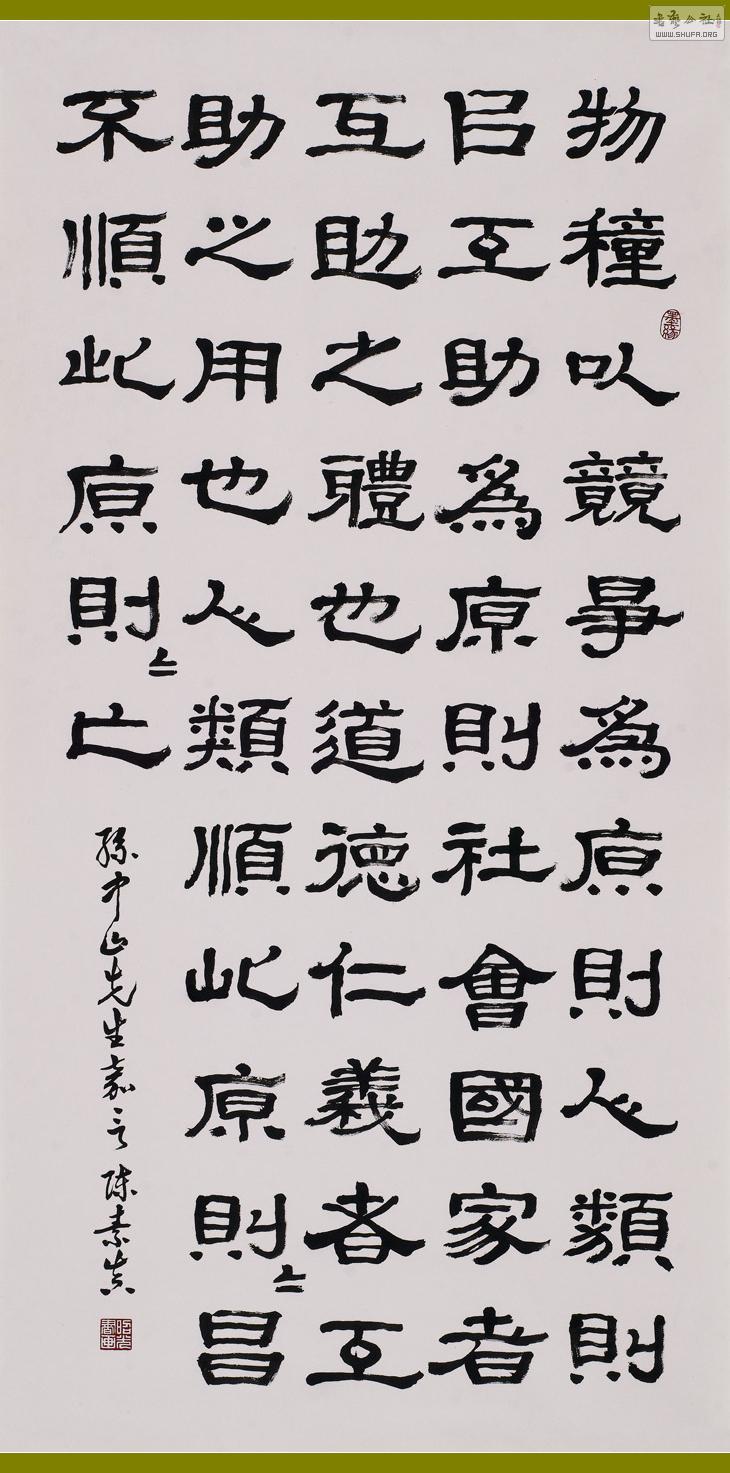 物穜以競爭爲原則人類則
㠯互助爲原則社會國家者
互助之體也道德仁義者互
助之用也人類順此原則〻昌
不順此原則〻亡
孫中山先生嘉言 陳素真
WWW.SHUFA.ORG